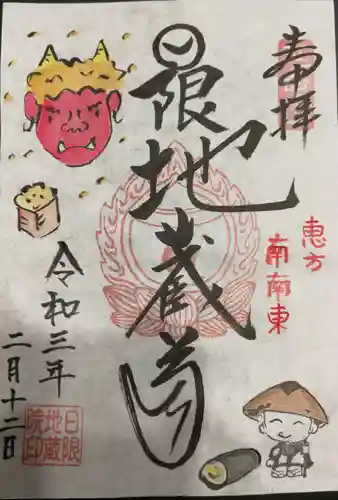 奉拝
恵方
南南東
日限地蔵尊
令和三年
二月十二日
日限
地蔵
院印